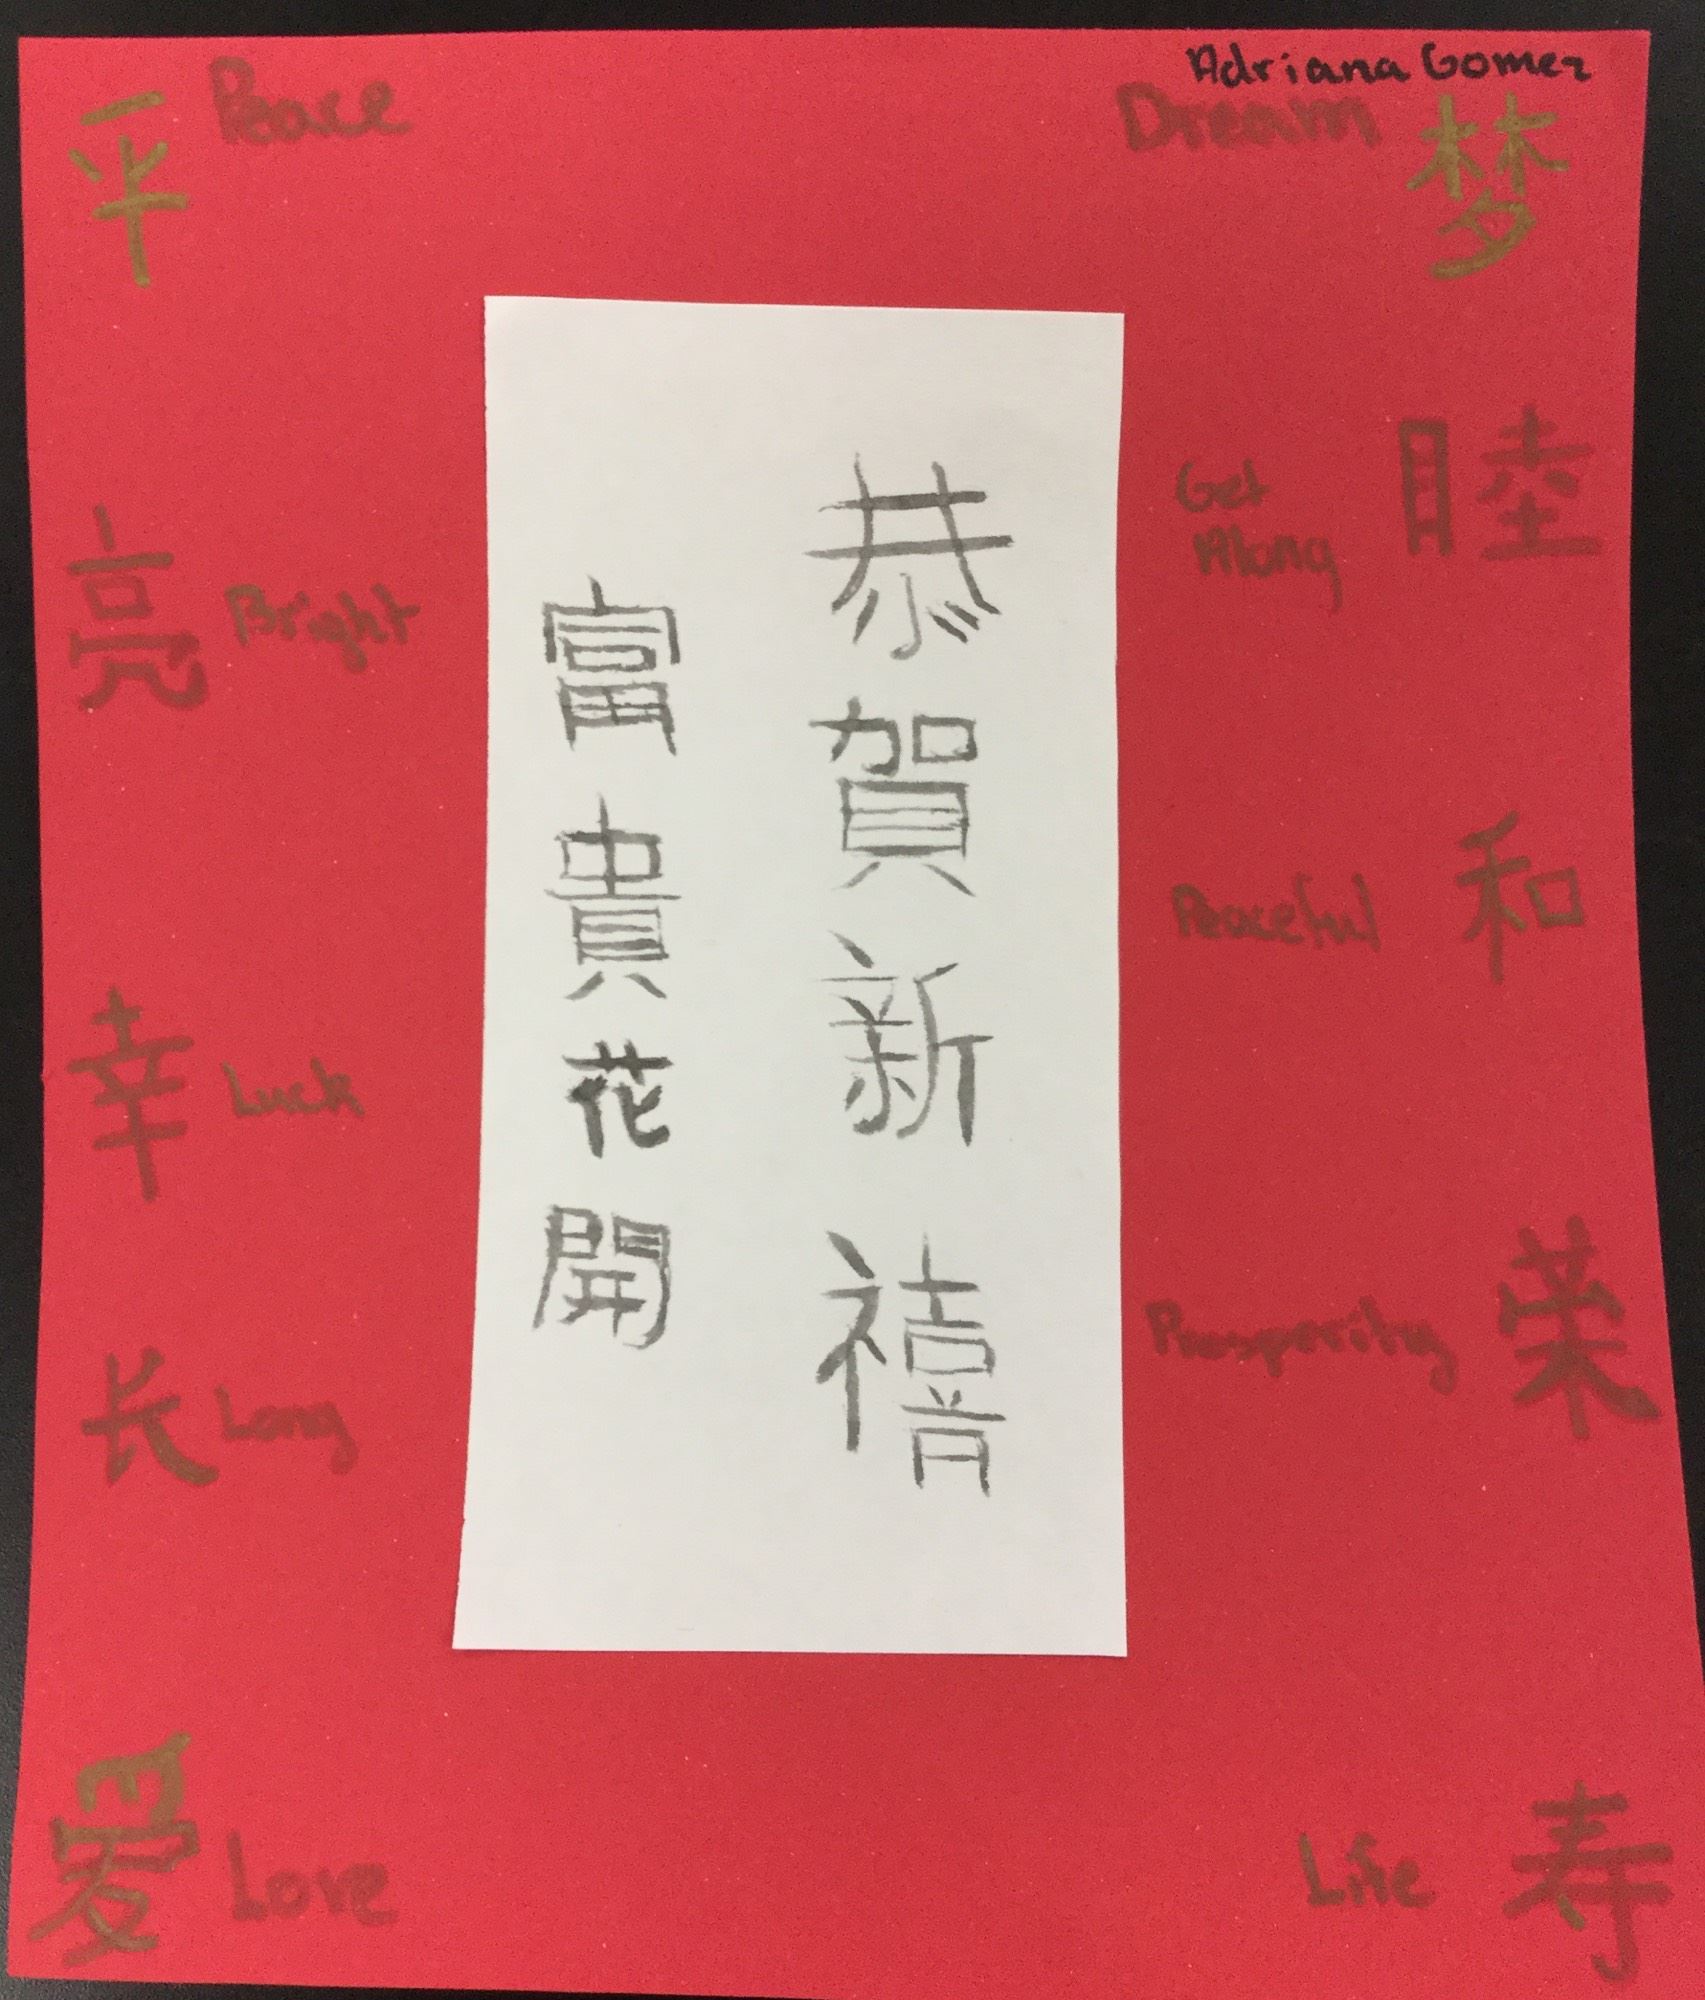 Adriana Gomez
平 Peace
Dream 梦
Get
Along
睦
亮 Bright
Peaceful 和
幸 Luck
Prosperity 荣
长 Long
爱 Love
Life 寿
恭賀新禧
富貴花開